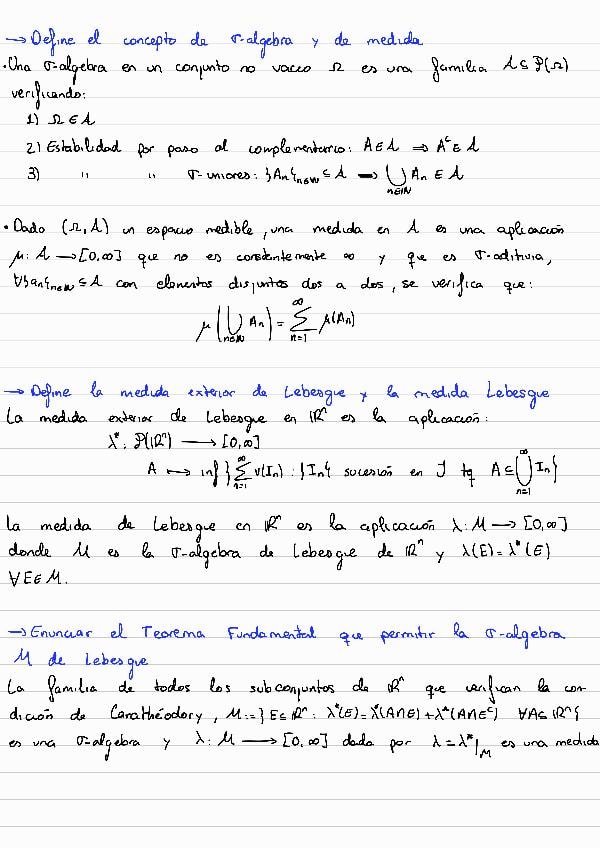 → Define el concepto de σ-algebra y de medida
• Una σ-algebra en un conjunto no vacío Ω es una familia A ⊆ P(Ω)
verificando:
1) Ω ∈ A
2) Estabilidad por paso al complementario: A ∈ A ⇒ Aᶜ ∈ A
3) " " σ-uniones: }Aₙ{ₙ∈ℕ ⊆ A → ⋃ₙ∈ℕ Aₙ ∈ A
• Dado (Ω, A) un espacio medible, una medida en A es una aplicación
μ: A → [0,∞] que no es constantemente ∞ y que es σ-aditiva,
∀}an{ₙ∈ℕ ⊆ A con elementos disjuntos dos a dos, se verifica que:
μ(⋃ₙ∈ℕ Aₙ) = ∑ₙ₌₁^∞ μ(Aₙ)
→ Define la medida exterior de Lebesgue y la medida Lebesgue
La medida exterior de Lebesgue en ℝⁿ es la aplicación:
λ*: P(ℝⁿ) → [0,∞]
A ↦ inf }∑ₙ₌₁^∞ v(Iₙ) : }Iₙ{ sucesión en J tq A ⊆ ⋃ₙ₌₁^∞ Iₙ{
La medida de Lebesgue en ℝⁿ es la aplicación λ: M → [0,∞]
donde M es la σ-algebra de Lebesgue de ℝⁿ y λ(E) = λ*(E)
∀E∈M.
→ Enunciar el Teorema Fundamental que permitir la σ-algebra
M de Lebesgue
La familia de todos los subconjuntos de ℝⁿ que verifican la con
dición de Carathéodory, M:=}E⊆ℝⁿ: λ*(E)=λ*(A∩E)+λ*(A∩Eᶜ) ∀A⊆ℝⁿ{
es una σ-algebra y λ: M → [0,∞] dada por λ=λ*|_M es una medida